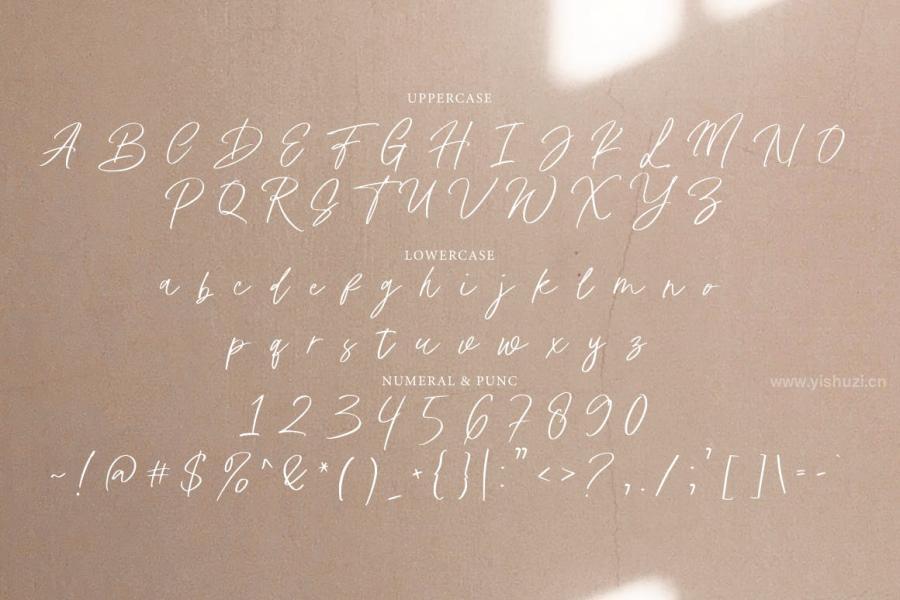 UPPERCASE
A B C D E F G H I J K L M N O
P Q R S T U V W X Y Z
LOWERCASE
a b c d e f g h i j k l m n o
p q r s t u v w x y z
www.yishuzi.cn
NUMERAL & PUNC
1 2 3 4 5 6 7 8 9 0
~ ! @ # $ % ^ & * ( ) _ + { } | : " < > ? , . / ; ' [ ] \ = - `